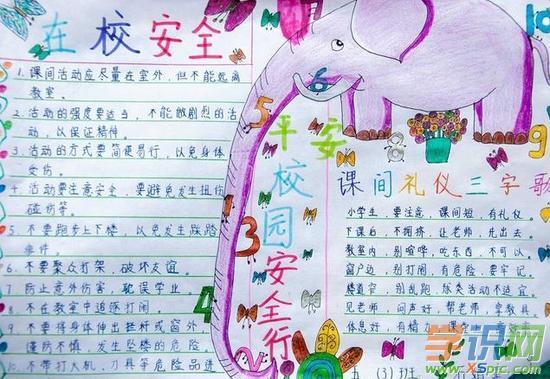 在校安全
1. 课间活动应尽量在室外，但不能远离
教室。
2. 活动的强度要适当，不能做剧烈的活
动，以保证精神。
3. 活动的方式要简便易行，以免身体
受伤。
4. 活动要注意安全，要避免发生扭伤
碰伤等。
5. 不要跑步上下楼，以免发生踩踏
事件。
6. 不要聚众打架，破坏友谊。
7. 防止意外伤害，耽误学业
8. 不在教室中追逐打闹。
9. 不要将身体伸出栏杆或窗外，
谨防不慎，发生坠楼的危险
10. 不带打火机、刀具等危险品进
平安校园安全行
2
3
4
5
6
8
9
10
课间礼仪三字歌
小学生，要注意，课间短，有礼仪。
下课后，不拥挤，让老师，先出去。
教室内，别喧哗，吃东西，不可以。
窗户边，别打闹，有危险，要牢记。
楼道窄，别乱跑，激烈活动不适宜。
见老师，问声好，帮老师，拿教具。
休息好，有精
五（3）班
学识网
www.XSpic.com